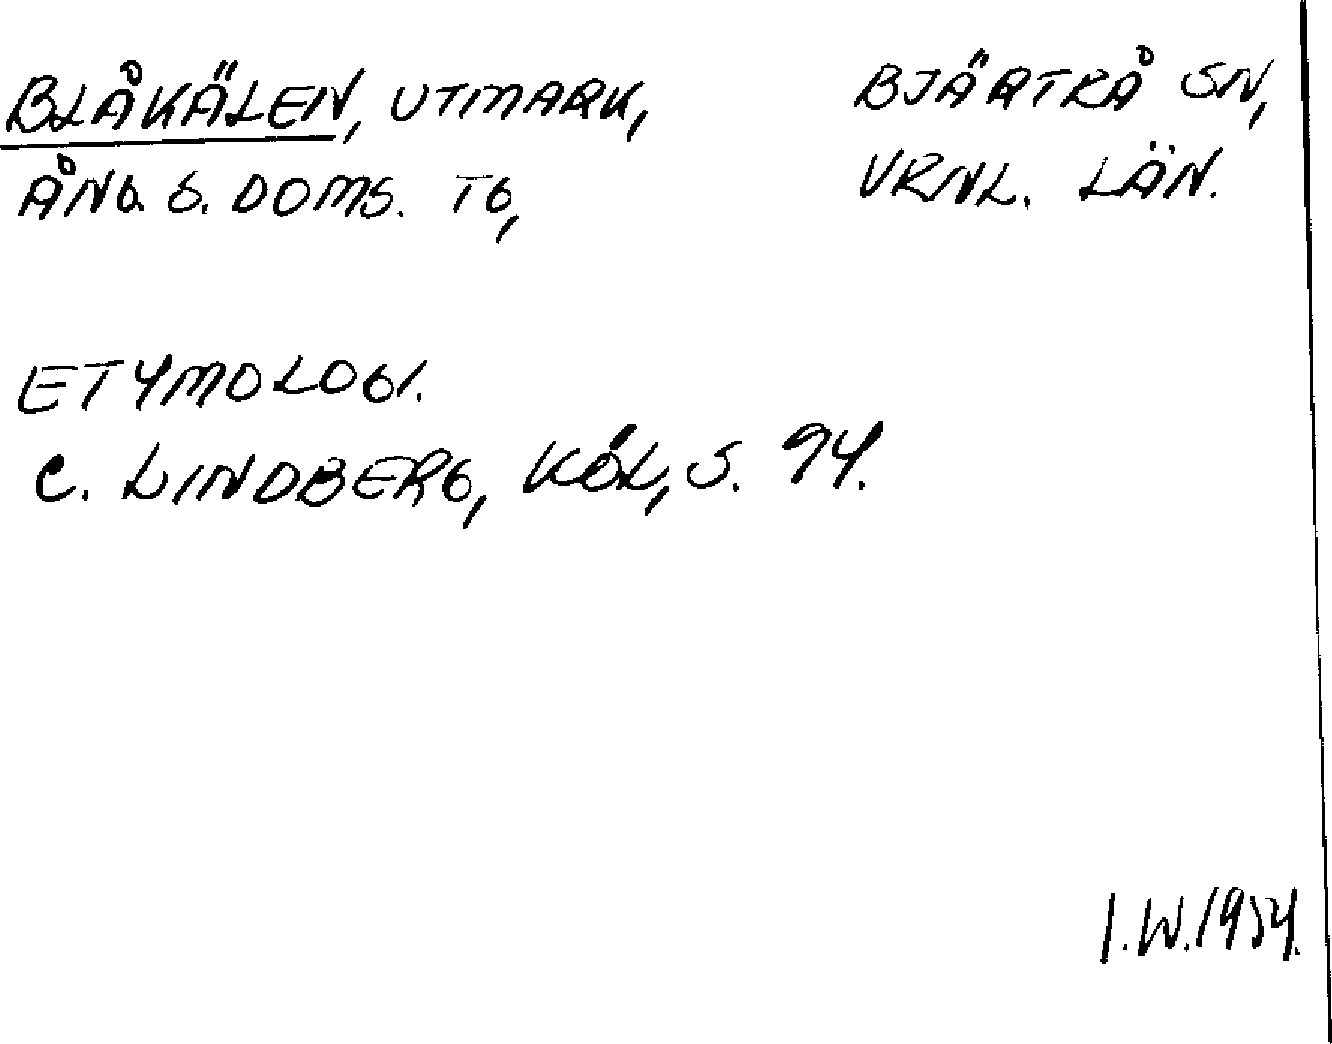 BLÅKÄLEN, UTMARK, BJÄRTRÅ SN,
ÅNG. S. DOMS. TG, VRNL. LÄN.
ETYMOLOGI.
C. LINDBERG, KÖL, S. 94.
I.W. 1954.